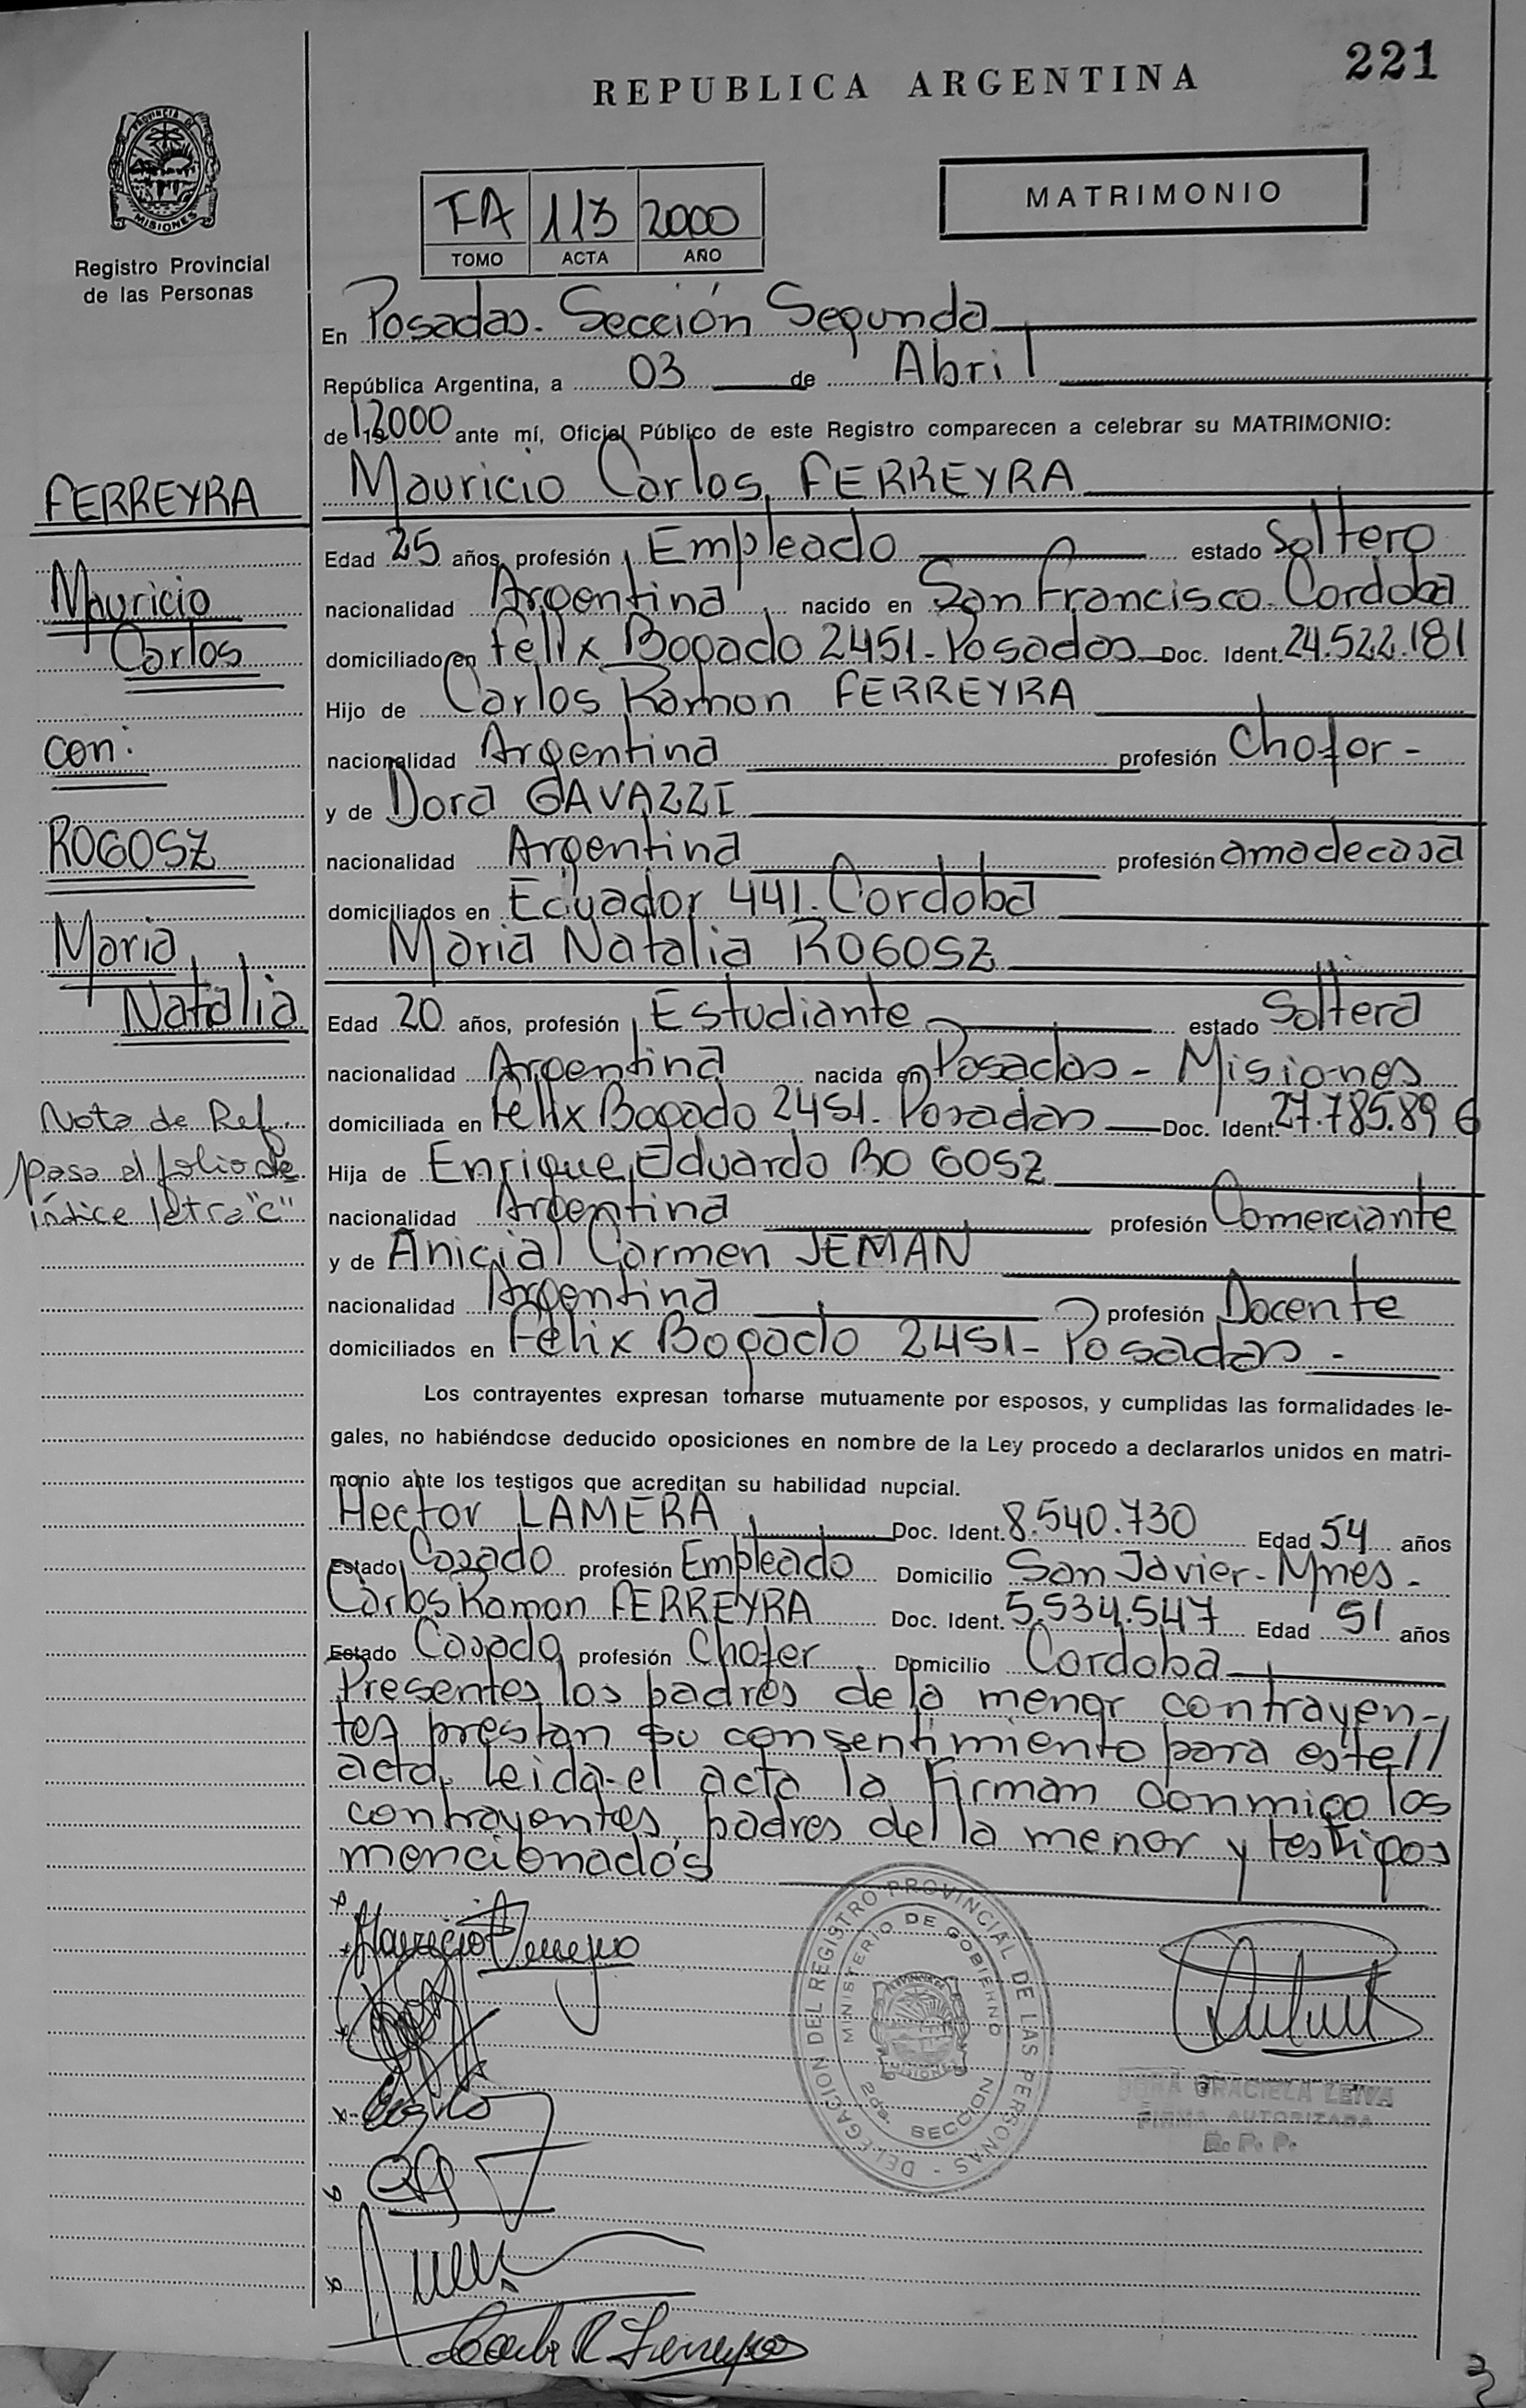 221
REPUBLICA ARGENTINA
PROVINCIA DE
MISIONES
Registro Provincial
de las Personas
MATRIMONIO
113 2000
TOMO ACTA AÑO
En Posadas. Sección Segunda
República Argentina, a 03 de Abril
de 2000 ante mí, Oficial Público de este Registro comparecen a celebrar su MATRIMONIO:
FERREYRA
Mauricio
Carlos
con:
ROGOSZ
Maria
Natalia
Nota de Ref.
pasa al folio de
índice letra "C"
Mauricio Carlos FERREYRA
Edad 25 años, profesión Empleado estado Soltero
nacionalidad Argentina nacido en San Francisco. Cordoba
domiciliado en Felix Bogado 2451-Posadas Doc. Ident. 24.522.181
Hijo de Carlos Ramon FERREYRA
nacionalidad Argentina profesión Chofer -
y de Dora GAVAZZI
nacionalidad Argentina profesión ama de casa
domiciliados en Ecuador 441. Cordoba
Maria Natalia ROGOSZ
Edad 20 años, profesión Estudiante estado Soltera
nacionalidad Argentina nacida en Posadas - Misiones
domiciliada en Felix Bogado 2451. Posadas Doc. Ident. 27.785.896
Hija de Enrique Eduardo ROGOSZ
nacionalidad Argentina profesión Comerciante
y de Anicial Carmen JEMAN
nacionalidad Argentina profesión Docente
domiciliados en Felix Bogado 2451- Posadas -
Los contrayentes expresan tomarse mutuamente por esposos, y cumplidas las formalidades le-
gales, no habiéndose deducido oposiciones en nombre de la Ley procedo a declararlos unidos en matri-
monio ante los testigos que acreditan su habilidad nupcial.
Hector LAMERA Doc. Ident. 8.540.730 Edad 54 años
Estado Casado profesión Empleado Domicilio San Javier-Mnes-
Carlos Ramon FERREYRA Doc. Ident. 5.534.547 Edad 51 años
Estado Casado profesión Chofer Domicilio Cordoba
Presentes los padres de la menor contrayen-
tes prestan su consentimiento para este//
acto, Leida-el acta la firman conmigo los
contrayentes, padres de la menor y testigos
mencionados
Mauricio Ferreyra
DELEGACION DEL REGISTRO PROVINCIAL DE LAS PERSONAS -
MINISTERIO DE GOBIERNO
2da. SECCION
DORA GRACIELA LEIVA
FIRMA AUTORIZADA
R. P. P.
Carlos R Ferreyra